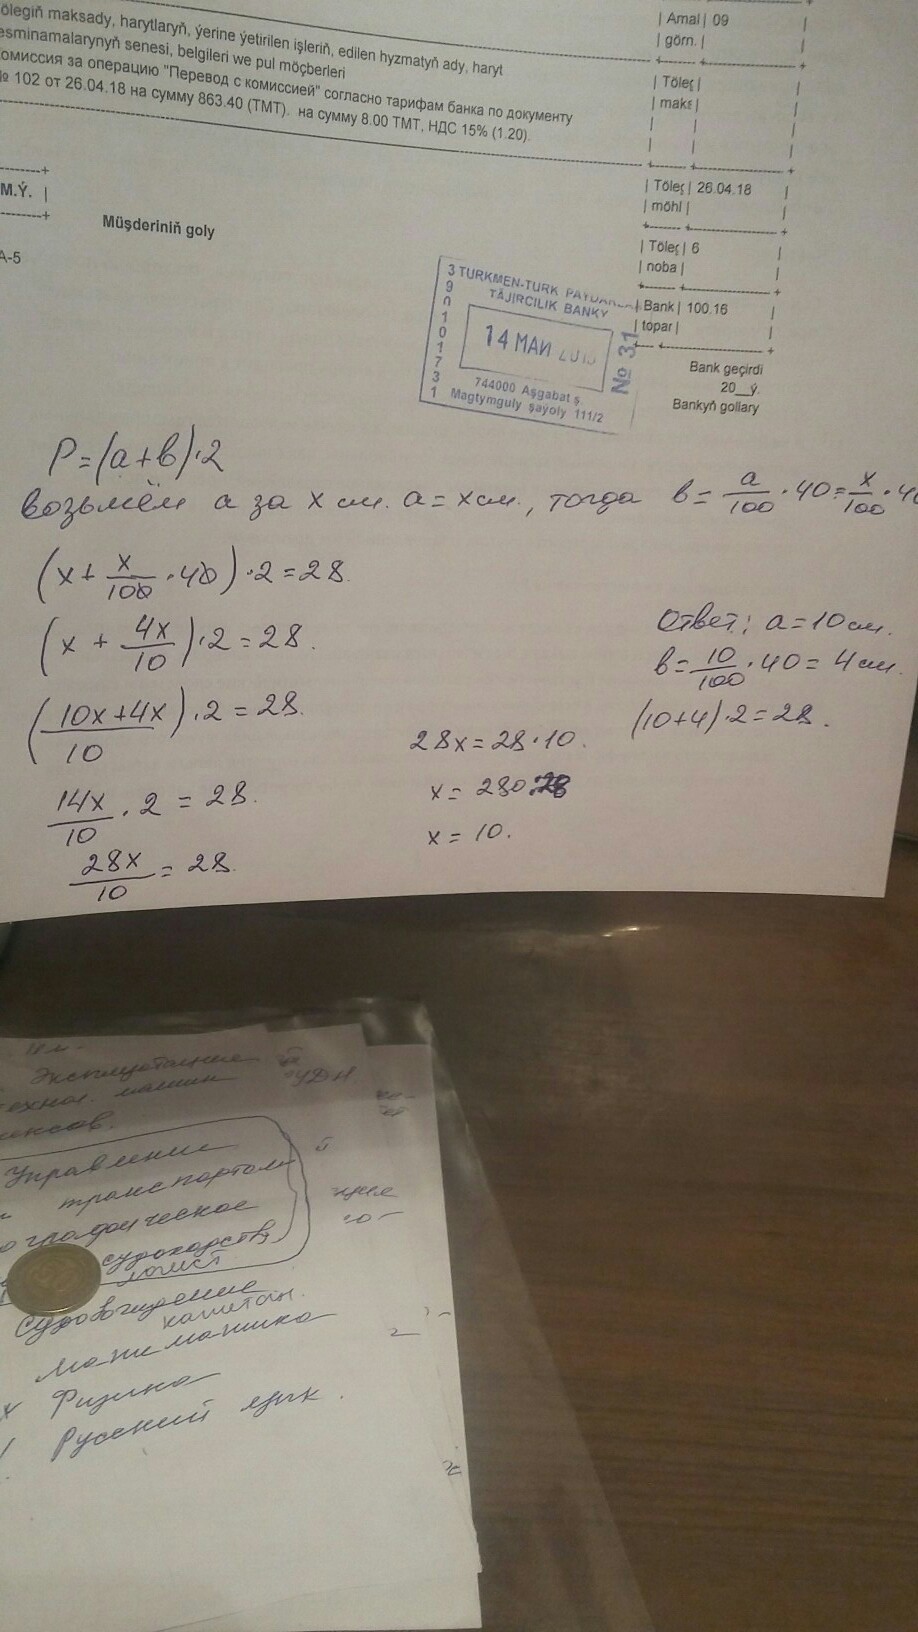 ölegiň maksady, harytlaryň, ýerine ýetirilen işleriň, edilen hyzmatyň ady, haryt
esminamalarynyň senesi, belgileri we pul möçberleri
омиссия за операцию "Перевод с комиссией" согласно тарифам банка по документу
№ 102 от 26.04.18 на сумму 863.40 (ТМТ). на сумму 8.00 ТМТ, НДС 15% (1.20).
| Amal | 09
| görn. |
| Töleg |
| maks |
| Töleg | 26.04.18
| möhl |
| Töleg | 6
| noba |
| Bank | 100.16
| topar |
Bank geçirdi
20__ý.
Bankyň gollary
M.Ý. |
Müşderiniň goly
A-5
TURKMEN-TURK PAYDAR
TÄJIRCILIK BANKY
14 МАЙ
№ 31
744000 Aşgabat ş.
Magtymguly şaýoly 111/2
390101731
P=(a+b)·2
возьмём a за x см. a=x см., тогда b= a/100 ·40= x/100 ·40
(x+ x/100 ·40)·2=28.
(x + 4x/10)·2=28.
(10x+4x/10)·2=28.
14x/10 · 2 = 28.
28x/10 = 28.
28x=28·10.
x= 280:28
x= 10.
Ответ: a=10 см.
b= 10/100 ·40= 4 см.
(10+4)·2=28.
Эксплуатация
технол. машин
Управление
транспортом
графическое
судоходств
логист
Судовождение
капитан.
Математика
Физика
Русский язык.